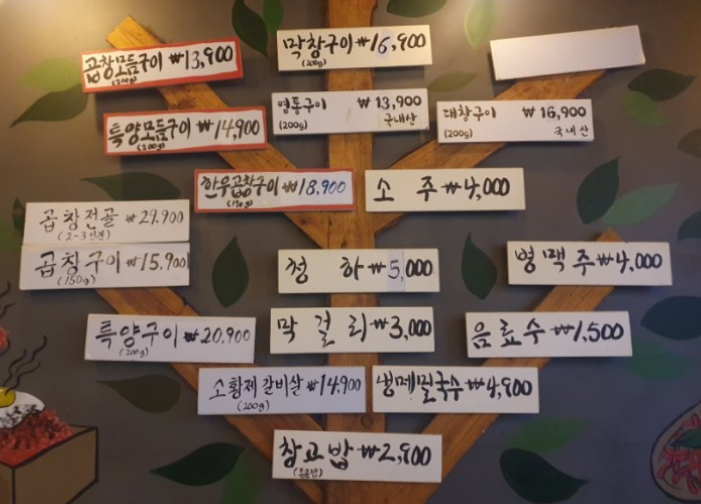 곱창모듬구이 ₩13,900
(200g)
막창구이 ₩16,900
(200g)
특양모듬구이 ₩14,900
(200g)
염통구이 ₩13,900
(200g) 국내산
대창구이 ₩16,900
(200g) 국내산
한우곱창구이 ₩18,900
(150g)
소주 ₩4,000
곱창전골 ₩29,900
(2-3인분)
곱창구이 ₩15,900
(150g)
청하 ₩5,000
병맥주 ₩4,000
특양구이 ₩20,900
(200g)
막걸리 ₩3,000
음료수 ₩1,500
소황제갈비살 ₩14,900
(200g)
냉메밀국수 ₩4,900
창고밥 ₩2,900
(볶음밥)